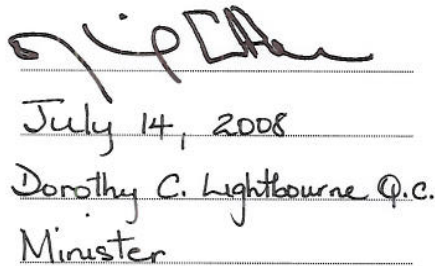 July 14, 2008
Dorothy C. Lightbourne Q.C.
Minister